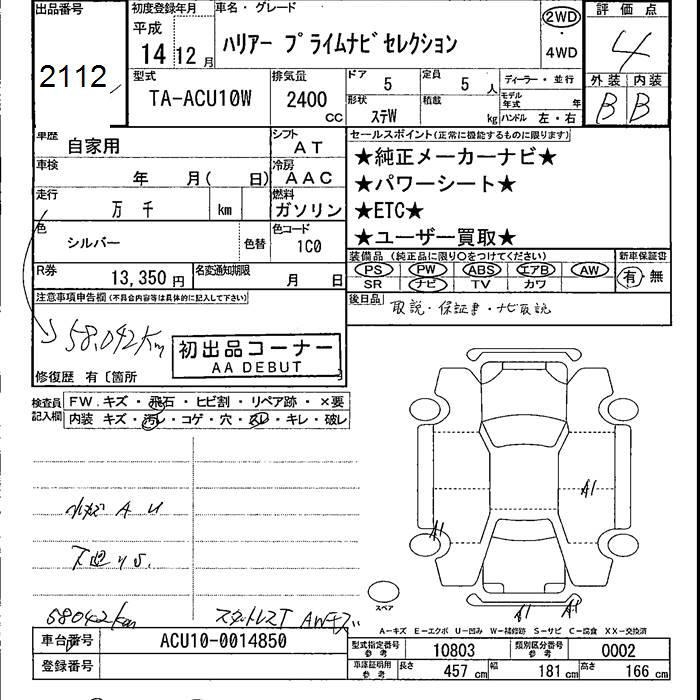 出品番号 初度登録年月 車名・グレード 評価点
平成
14 12月 ハリアー プライムナビセレクション 2WD ・ 4WD 4
2112
型式 排気量 ドア 定員 ディーラー・並行 外装 内装
TA-ACU10W 2400 CC 5 5人 モデル年式 年 B B
形状 積載 ハンドル 左・右
ステW kg
車歴 シフト セールスポイント(正常に機能するものに限ります)
自家用 AT
★純正メーカーナビ★
車検 冷房
年 月( 日) AAC
★パワーシート★
走行 燃料
万 千 km ガソリン
★ETC★
色 色コード
シルバー 色替 1C0
★ユーザー買取★
装備品 (純正品に限り○をつけてください) 新車保証書
R券 名変通知期限 PS PW ABS エアB AW 有・無
13,350円 月 日 SR ナビ TV カワ
注意事項申告欄(不具合内容等は具体的に記入して下さい) 後日品
取説・保証書・ナビ取説
58,042km
初出品コーナー
AA DEBUT
修復歴 有〔箇所
検査員記入欄 FW.キズ・飛石・ヒビ割・リペア跡・×要
内装 キズ・汚レ・コゲ・穴・スレ・キレ・破レ
A1
A1
小キズ A U
下廻りS.
スペア
58042km スタットレスT AWキズ
A1 A1
A−キズ E−エクボ U−凹み W−補修跡 S−サビ C−腐食 XX−交換済
車台番号 ACU10-0014850
型式指定番号 参考 10803 類別区分番号 参考 0002
登録番号
車庫証明用 参考 長さ 457 cm 幅 181 cm 高さ 166 cm